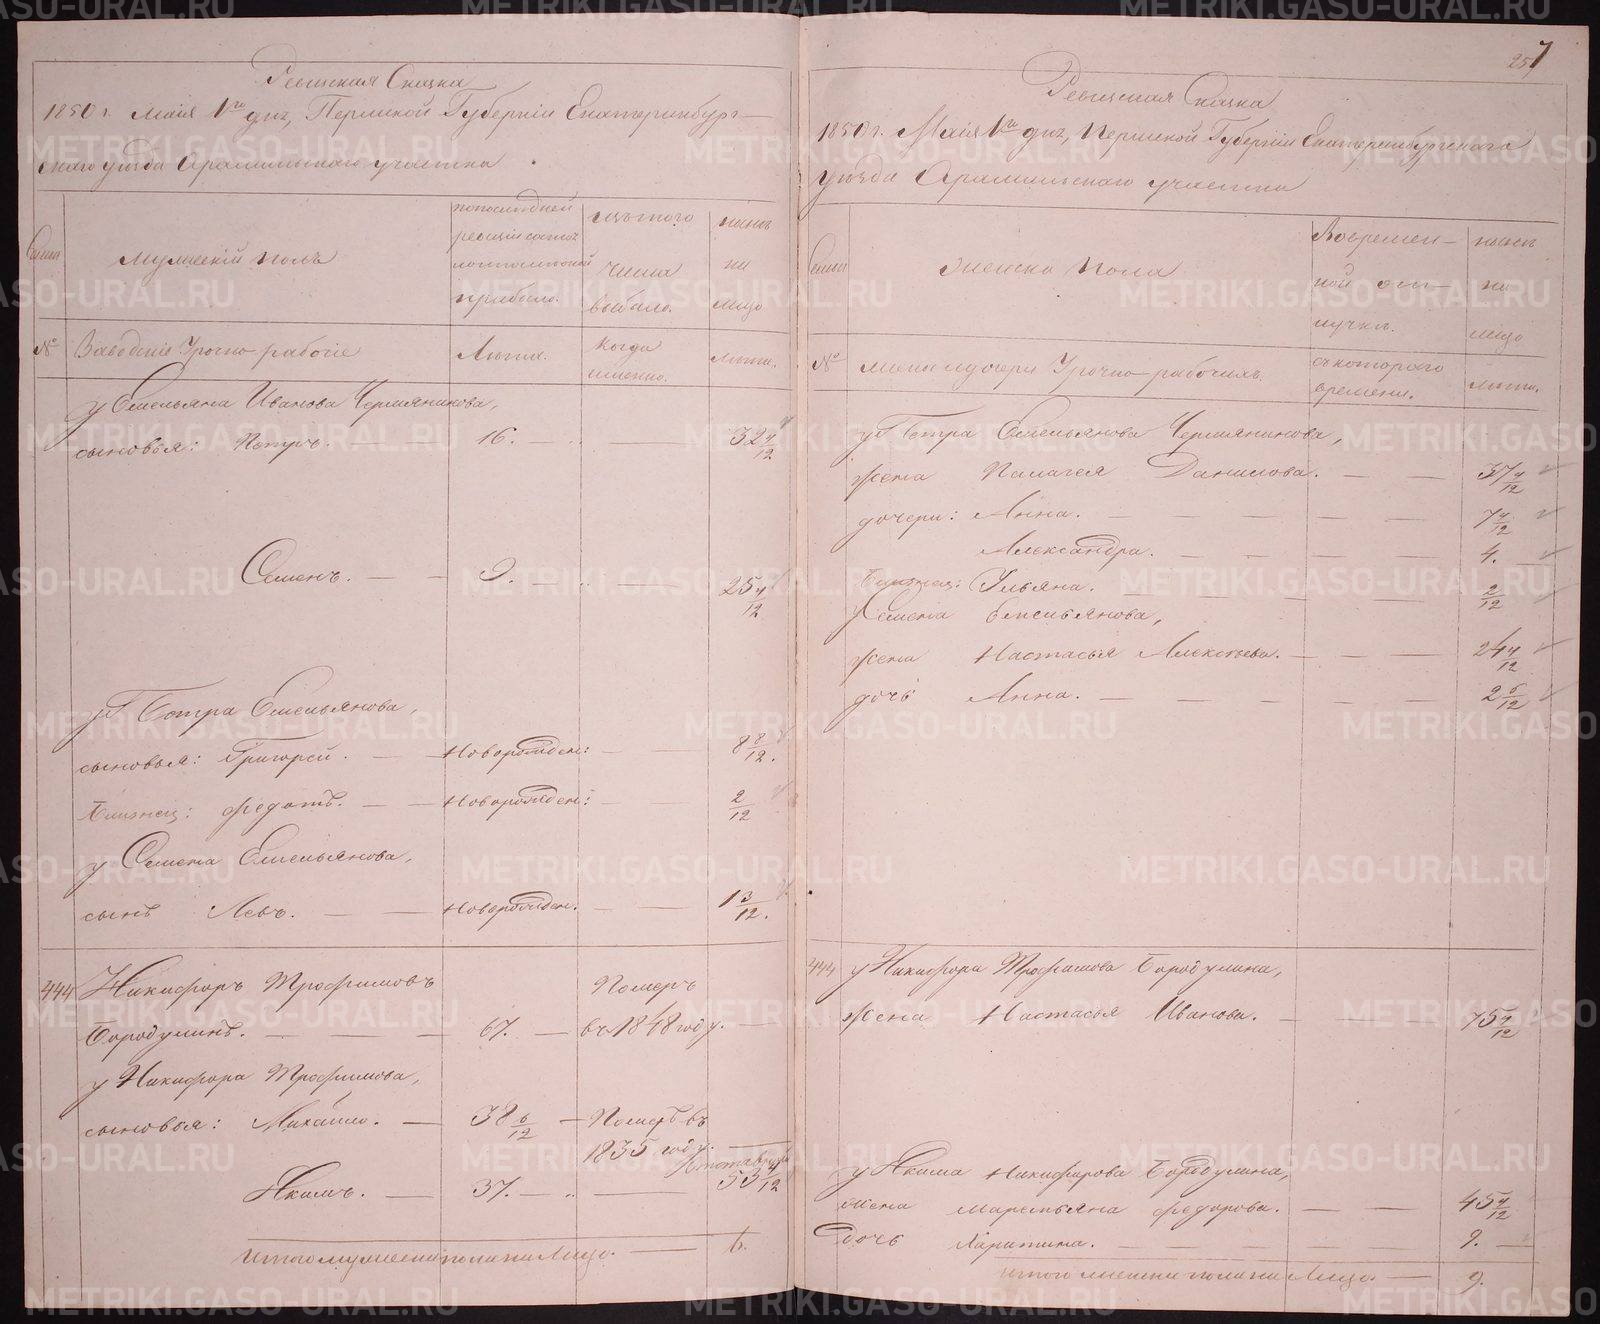 Ревизская Сказка
1850 г. Маія 1го дня, Пермской Губерніи Екатеринбург-
скаго уезда Арамильскаго участка
Семьи
Мужескій полъ
По последней ревизіи состояло и после оной прибыло.
Изъ того числа выбыло.
Ныне на лицо
№
Заводскіе Урочно рабочіе
Лета.
Когда именно.
Лета.
у Емельяна Иванова Чермянинова,
сыновья: Петръ. — 16. — 32 4/12
Семенъ. — 9. — 25 4/12
у Петра Емельянова,
сыновья: Григорей. — Новорожден: — 8 8/12.
близнец: Федотъ. — Новорожден: — 2/12
у Семена Емельянова,
сынъ Левъ. — Новорожден. — 13/12.
444 Никифоръ Трофимовъ Померъ
Бородулинъ. — 67. — въ 1848 году. —
у Никифора Трофимова,
сыновья: Михайло. — 38 6/12 — Померъ въ
1835 году. —
Якимъ. — 37. — 53 4/12
Итого мужеска пола на Лицо. — 6.
257
Ревизская Сказка
1850 г. Маія 1го дня, Пермской Губерніи Екатеринбургскаго
уезда Арамильскаго участка
Семьи
Женска пола
Во времен-
ной от-
лучке.
Ныне
на
лицо
№
жены и дочери Урочно-рабочихъ.
съ котораго
времени.
лета.
у Петра Емельянова Чермянинова,
жена Палагея Данилова. — 37 4/12
дочери: Анна. — 7 4/12
Александра. — 4.
близнец: Ульяна. — 2/12
у Семена Емельянова,
жена Настасья Алексеева. — 24 4/12
дочь Анна. — 2 6/12
444 у Никифора Трофимова Бородулина,
жена Настасья Иванова. — 75 4/12
у Якима Никифорова Бородулина,
жена Маремьяна Федорова. — 45 4/12
дочь Харитина. — 9. —
Итого женска пола на Лицо. — 9.
METRIKI.GASO-URAL.RU